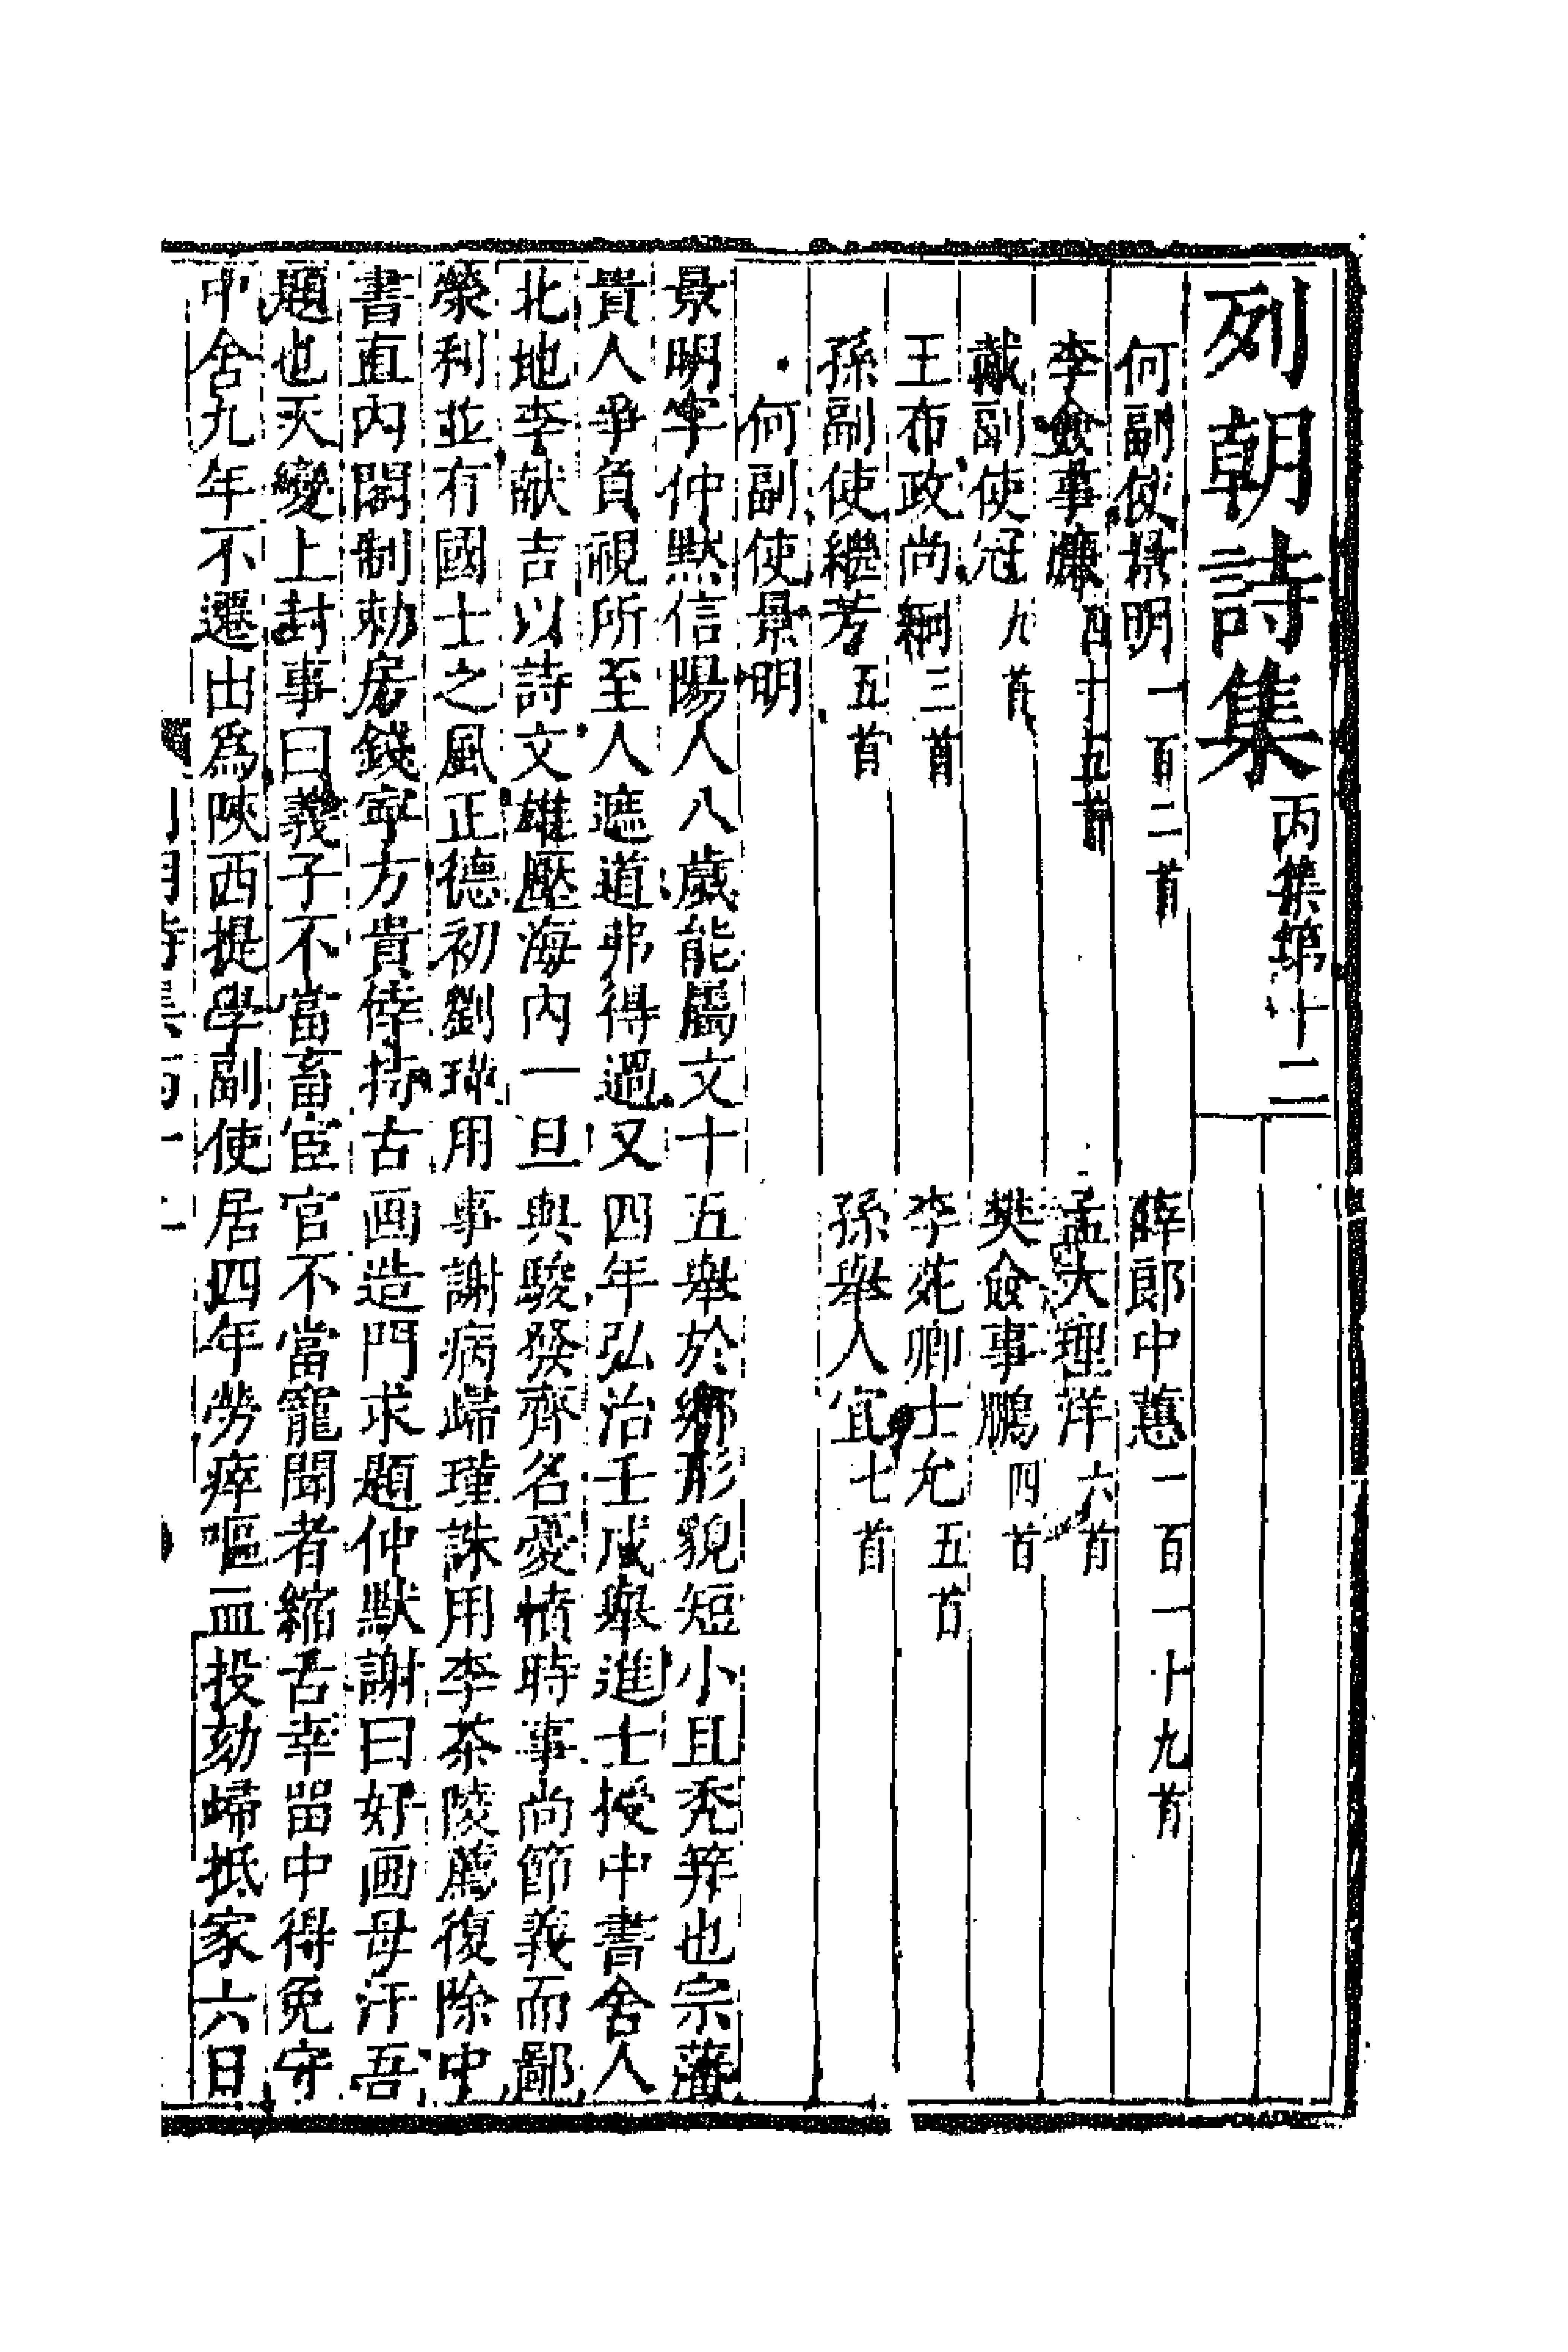 列朝詩集丙集第十二
何副使景明一百二首　薛郎中蕙一百一十九首
李僉事濂四十五首　孟大理洋六首
戴副使冠九首　樊僉事鵬四首
王布政尚絅三首　李苑卿士允五首
孫副使繼芳五首　孫舉人宜七首
何副使景明
景明字仲默信陽人八歲能屬文十五舉於鄉形貌短小且禿筓也宗藩
貴人爭負視所至人遮道弗得過又四年弘治壬戌舉進士授中書舍人
北地李献吉以詩文雄壓海內一旦與駿發齊名憂憤時事尚節義而鄙
榮利並有國士之風正德初劉瑾用事謝病歸瑾誅用李茶陵薦復除中
書直內閣制勅房錢寧方貴倖持古画造門求題仲默謝曰好画毋汙吾
題也天變上封事曰義子不當畜宦官不當寵聞者縮舌幸畱中得免守
中舍九年不遷出爲陝西提學副使居四年勞瘁嘔血投劾歸抵家六日